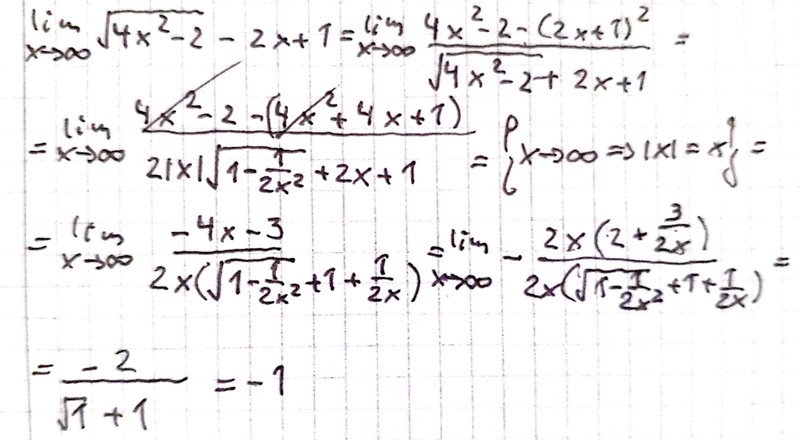 lim x→∞ √(4x²-2) - 2x+1 = lim x→∞ (4x²-2-(2x+1)²)/(√(4x²-2) + 2x+1) =
= lim x→∞ (4x²-2-(4x²+4x+1))/(2|x|√(1-1/(2x²)) + 2x+1) = {x→∞ ⇒ |x| = x} =
= lim x→∞ (-4x-3)/(2x(√(1-1/(2x²)) + 1 + 1/(2x))) = lim x→∞ - (2x(2+3/(2x)))/(2x(√(1-1/(2x²)) + 1 + 1/(2x))) =
= (-2)/(√1 + 1) = -1